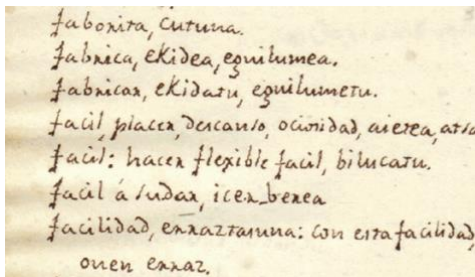 faborita, cutuna.
fabrica, ekidea, eguilumea.
fabricar, ekidatu, eguilumetu.
facil, placer, descanso, ociosidad,
facil: hacer flexible facil, bilucatu.
facil á sudar, icer_berea
facilidad, erraztasuna: con esta facilidad,
onen erraz.